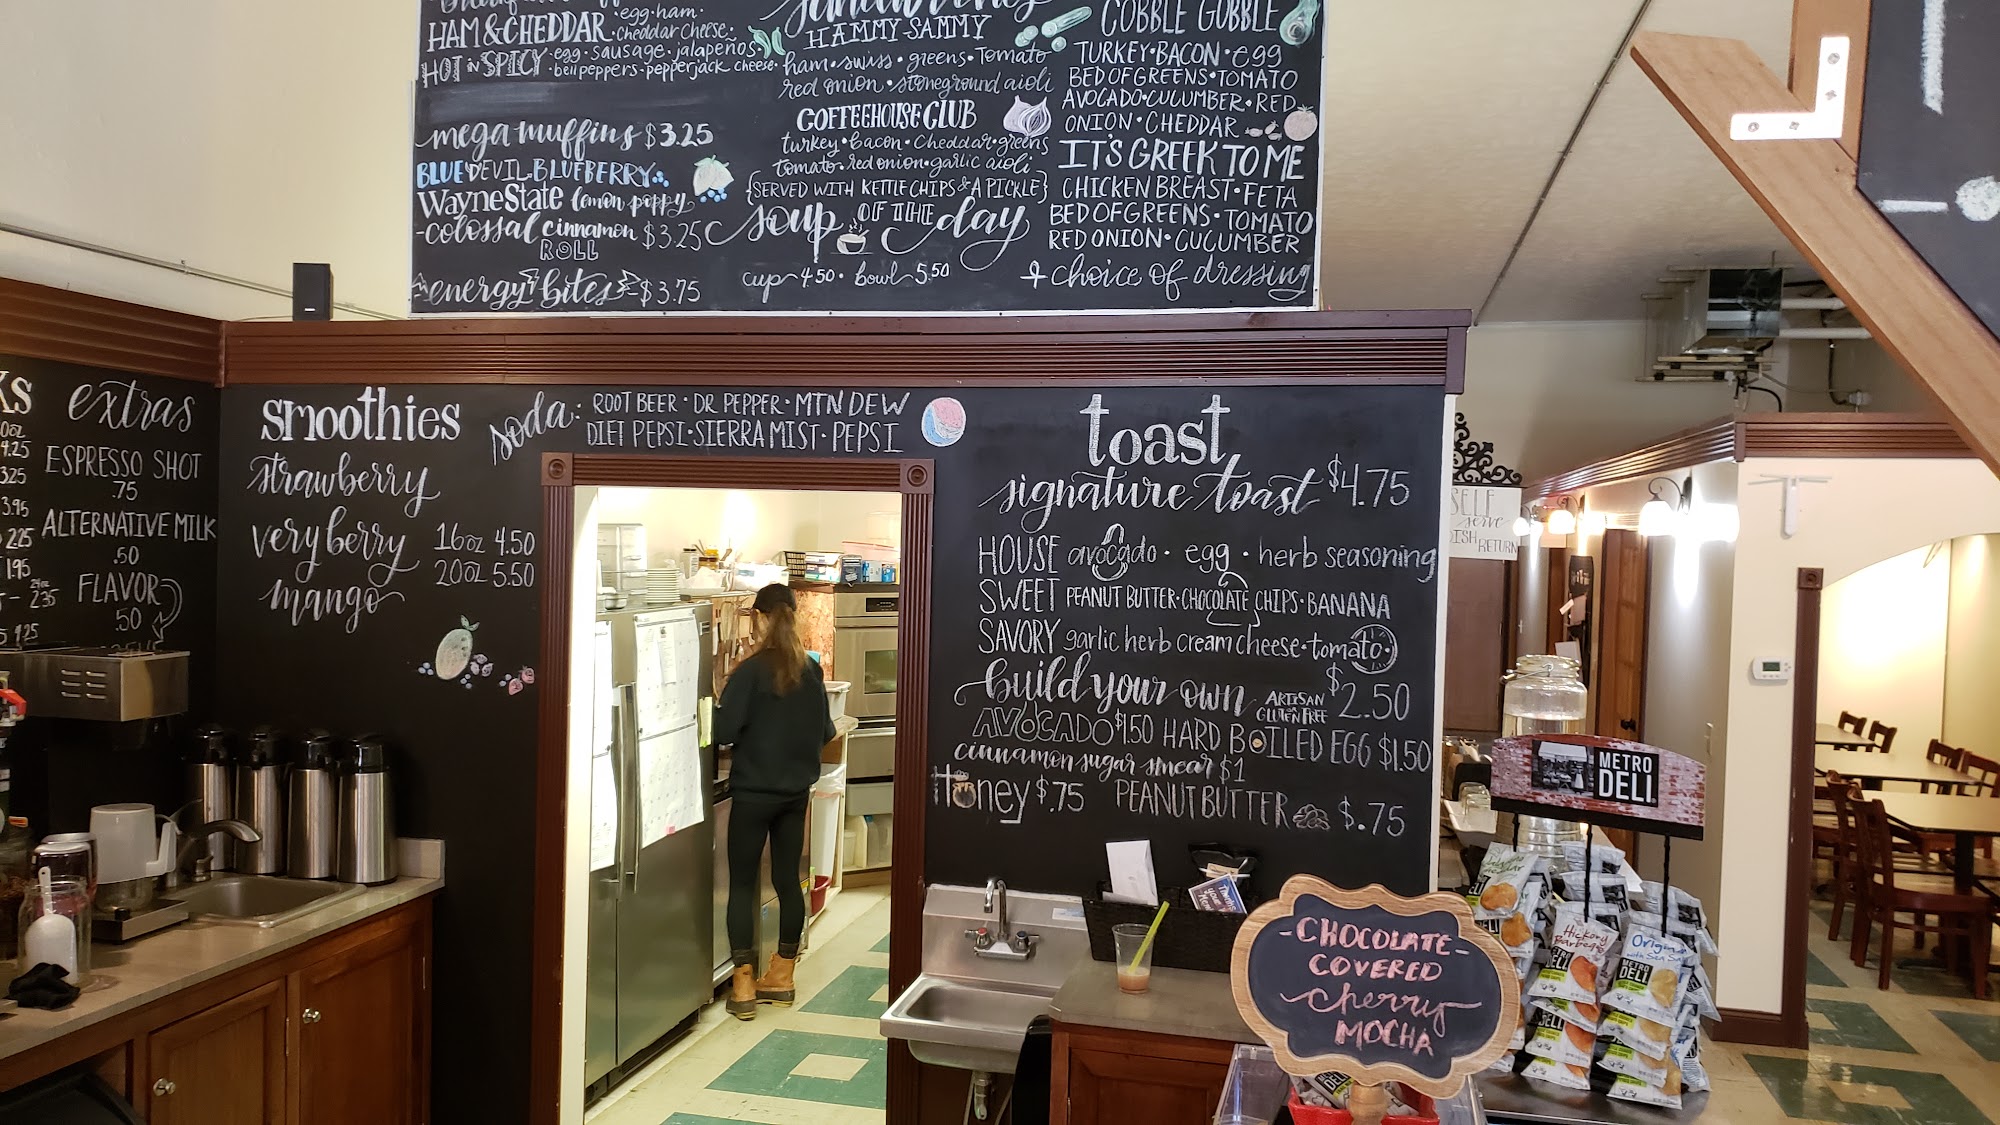 HAM & CHEDDAR • egg • ham • cheddar cheese •
HOT in SPICY • egg • sausage • jalapeños • bell peppers • pepperjack cheese •
mega muffins $3.25
BLUE DEVIL BLUEBERRY
Wayne State lemon poppy
-colossal cinnamon ROLL $3.25
energy bites - $3.75
HAMMY-SAMMY
ham • swiss • greens • Tomato
red onion • stoneground aioli
COFFEEHOUSE CLUB
turkey • bacon • cheddar • greens
tomato • red onion • garlic aioli
{SERVED WITH KETTLE CHIPS & A PICKLE}
soup OF THE day
cup 4.50 • bowl 5.50
COBBLE GOBBLE
TURKEY • BACON • egg
BED OF GREENS • TOMATO
AVOCADO • CUCUMBER • RED
ONION • CHEDDAR
IT'S GREEK TO ME
CHICKEN BREAST • FETA
BED OF GREENS • TOMATO
RED ONION • CUCUMBER
+ choice of dressing
extras
ESPRESSO SHOT
.75
ALTERNATIVE MILK
.50
FLAVOR
.50
4.25
3.25
3.95
2.25
1.95
2.35
smoothies
strawberry
very berry
mango
16oz 4.50
20oz 5.50
soda: ROOT BEER • DR PEPPER • MTN DEW
DIET PEPSI • SIERRA MIST • PEPSI
toast
signature toast $4.75
HOUSE avocado • egg • herb seasoning
SWEET PEANUT BUTTER • CHOCOLATE CHIPS • BANANA
SAVORY garlic herb cream cheese • tomato •
build your own ARTISAN OR GLUTEN FREE $2.50
AVOCADO $1.50 HARD BOILED EGG $1.50
cinnamon sugar smear $1
Honey $.75 PEANUT BUTTER $.75
SELF
serve
DISH RETURN
METRO
DELI
-CHOCOLATE-
COVERED
cherry
MOCHA
Hickory
Barbeque
METRO
DELI
Original
with Sea Salt
METRO
DELI